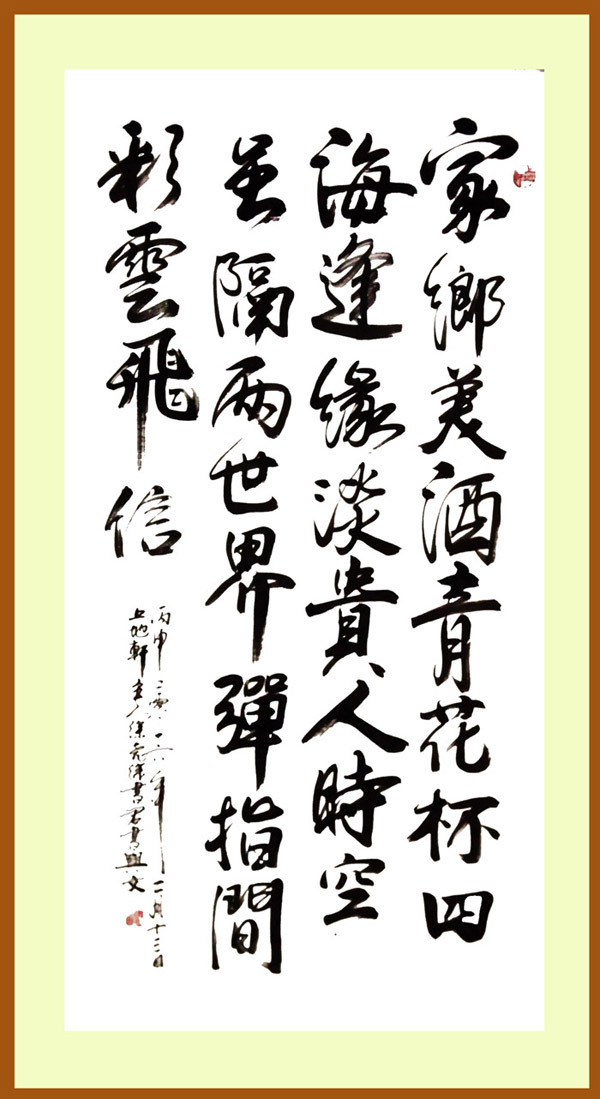 家鄉美酒青花杯四
海逢緣淡貴人時空
隔兩世界彈指間
彩雲飛信
丙申二零一六年二月十三日
上地軒主人徐